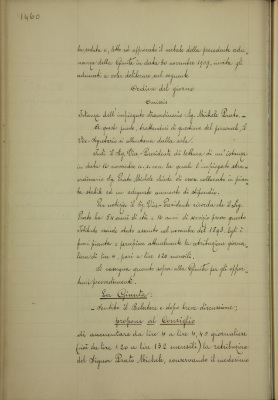 1460
la seduta e, letto ed approvato il verbale della precedente adu-
nanza della Giunta in data 20 novembre 1909, invita gli
adunati a voler deliberare sul seguente
Ordine del giorno
Omissis
Istanza dell'impiegato straordinario Sig. Michele Prato.
A questo punto, trattandosi di questione del personale, il
Vice Segretario si allontana dalla sala.
Indi il Sig. Vice-Presidente dà lettura di un'istanza
in data 20 novembre con la quale l'impiegato stra-
ordinario Sig. Prato Michele chiede di essere collocato in pian-
ta stabile ed un adeguato aumento di stipendio.
Per notizia il Sig. Vice-Presidente ricorda che il Sig.
Prato ha anni di età e anni di servizio presso questo
Istituto essendo stato assunto nel novembre del 1893. Egli è
fuori pianta e percepisce attualmente la retribuzione giorna-
liera di lire 4, pari a lire 120 mensili.
Si rassegna quanto sopra alla Giunta per gli oppor-
tuni provvedimenti.
La Giunta:
- Sentito il Relatore e dopo breve discussione;
propone al Consiglio
di aumentare da lire 4 a lire 4,40 giornaliere
(cioè da lire 120 a lire 132 mensili) la retribuzione
del Signor Prato Michele, conservando il medesimo